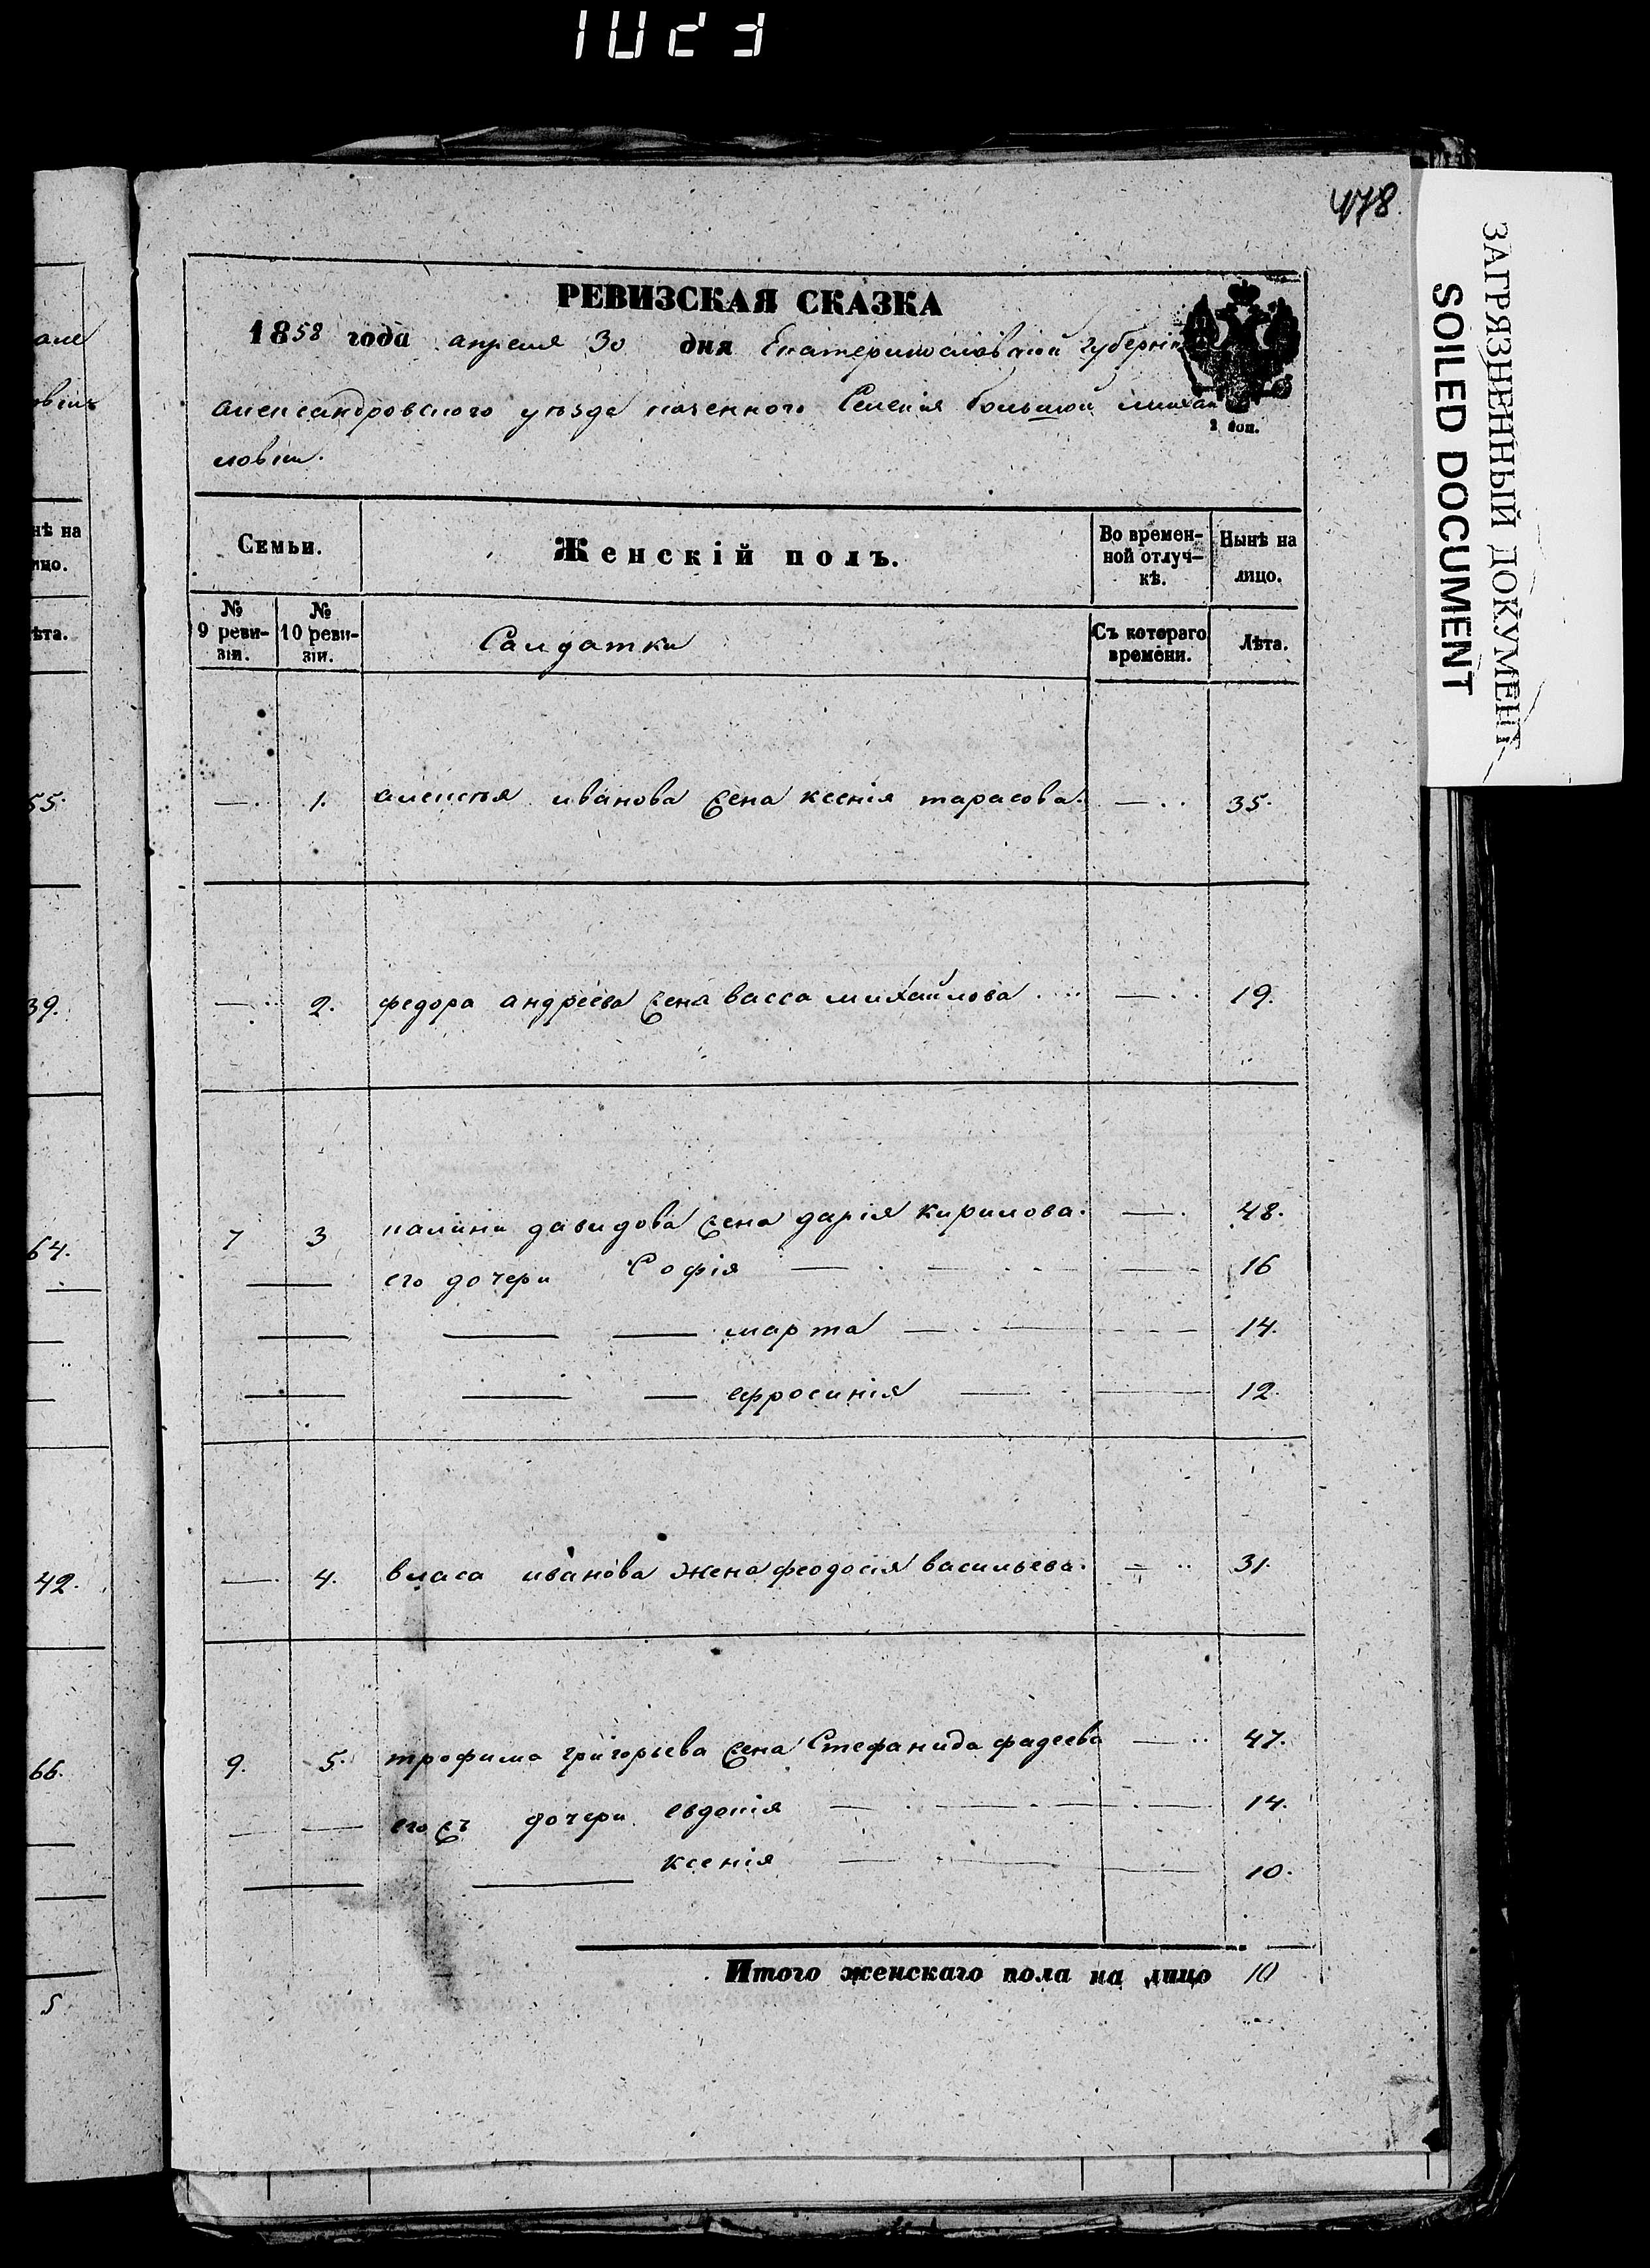 1023
478
ЗАГРЯЗНЕННЫЙ ДОКУМЕНТ
SOILED DOCUMENT
РЕВИЗСКАЯ СКАЗКА
1858 года апреля 30 дня Екатеринославской губерніи
александровского уезда казенного Селенія большой михай
ловки.
2 коп.
Семьи.
Женскій полъ.
Во времен-
ной отлуч-
кѣ.
Нынѣ на
лицо.
№
9 реви-
зіи.
№
10 реви-
зіи.
Салдатки
Съ котораго
времени.
Лѣта.
— 1. алексѣя иванова жена ксенія тарасова. — 35.
— 2. федора андреева жена васса михайлова — 19.
7 3 калины давидова жена дарія кирилова. — 48.
его дочери Софія — 16
марта — 14.
ефросинія — 12.
— 4. власа иванова жена феодосія васильева. — 31.
9. 5. трофима григорьева жена Стефанида фадеева — 47.
его жъ дочери евдокія — 14.
ксенія — 10.
Итого женскаго пола на лицо 10
нѣ на
ицо.
ѣта.
55.
39.
64.
42.
66.
5